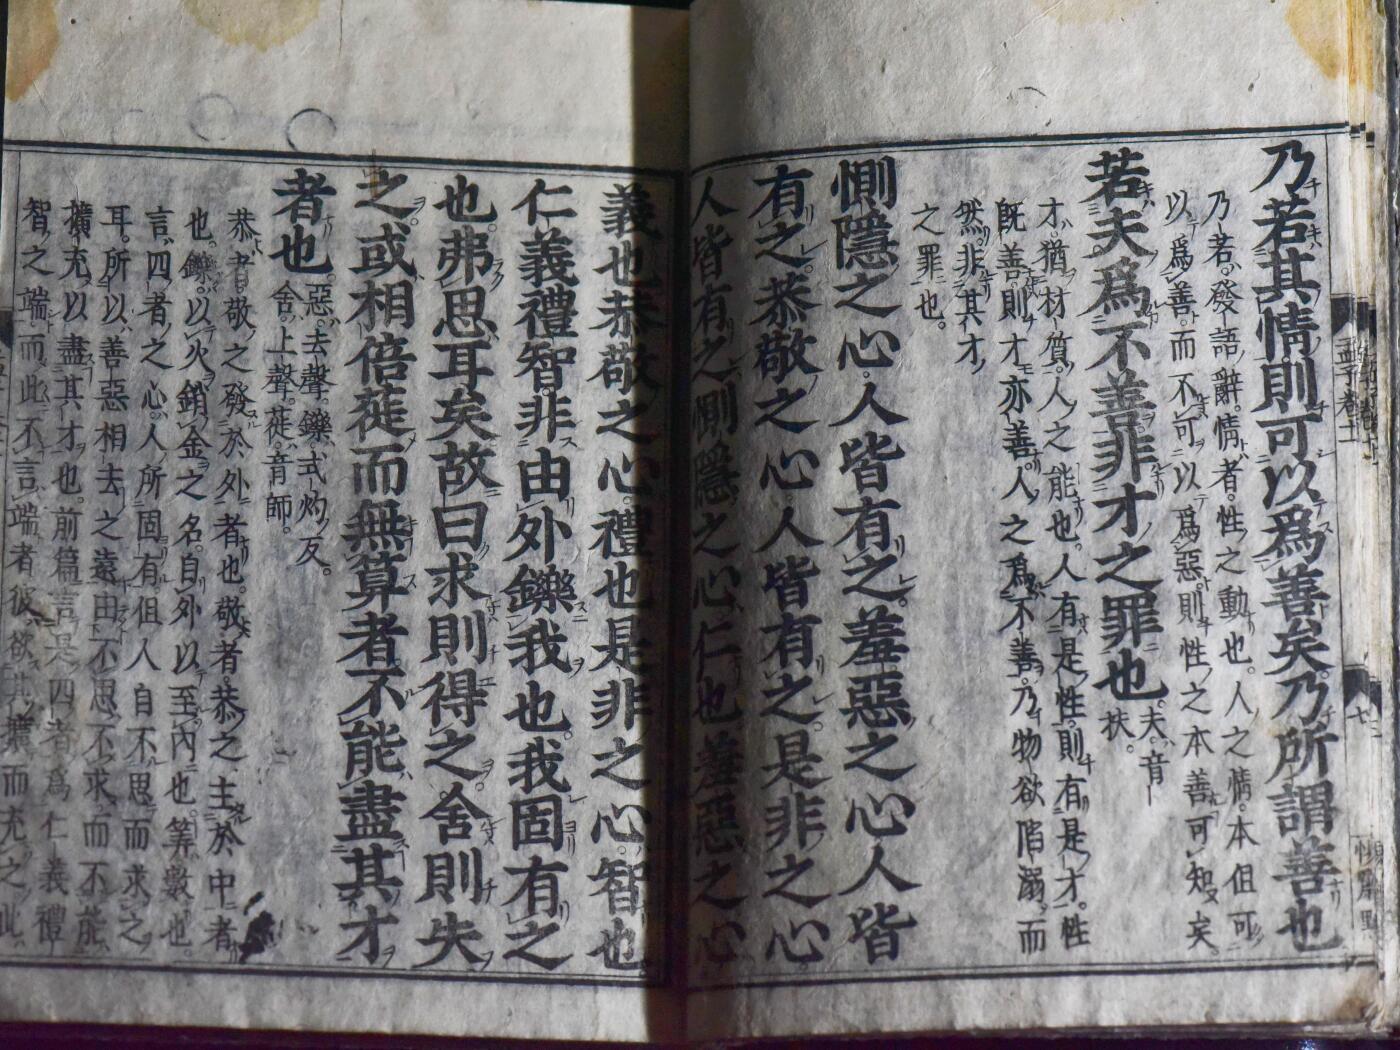 乃若其情則可以爲善矣乃所謂善也
乃若發語辭情者性之動也人之情本但可
以爲善而不可以爲惡則性之本善可知矣
若夫爲不善非才之罪也夫音
扶
才猶材質人之能也人有是性則有是才性
既善則才亦善人之爲不善乃物欲陷溺而
然非其才
之罪也
惻隱之心人皆有之羞惡之心人皆
有之恭敬之心人皆有之是非之心
人皆有之惻隱之心仁也羞惡之心
義也恭敬之心禮也是非之心智也
仁義禮智非由外鑠我也我固有之
也弗思耳矣故曰求則得之舍則失
之或相倍蓰而無算者不能盡其才
者也惡去聲鑠式灼反
舍上聲蓰音師
恭者敬之發於外者也敬者恭之主於中者
也鑠以火銷金之名自外以至內也筭數也
言四者之心人所固有但人自不思而求之
耳所以善惡相去之遠由不思不求而不能
擴充以盡其才也前篇言是四者爲仁義禮
智之端而此不言端者彼欲其擴而充之此
孟子卷十一
七